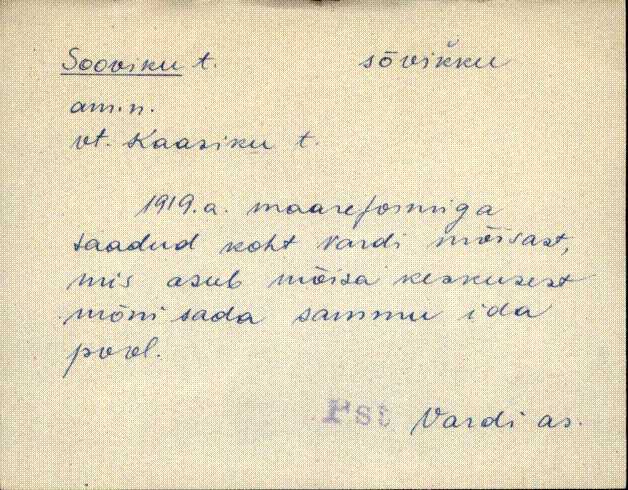 Sooviku t. sōvik̆ku
am.n.
vt. Kaasiku t.
1919.a. maareformiga
saadud koht Vardi mõisast,
mis asub mõisa keskusest
mõni sada sammu ida
pool.
Pst Vardi as.